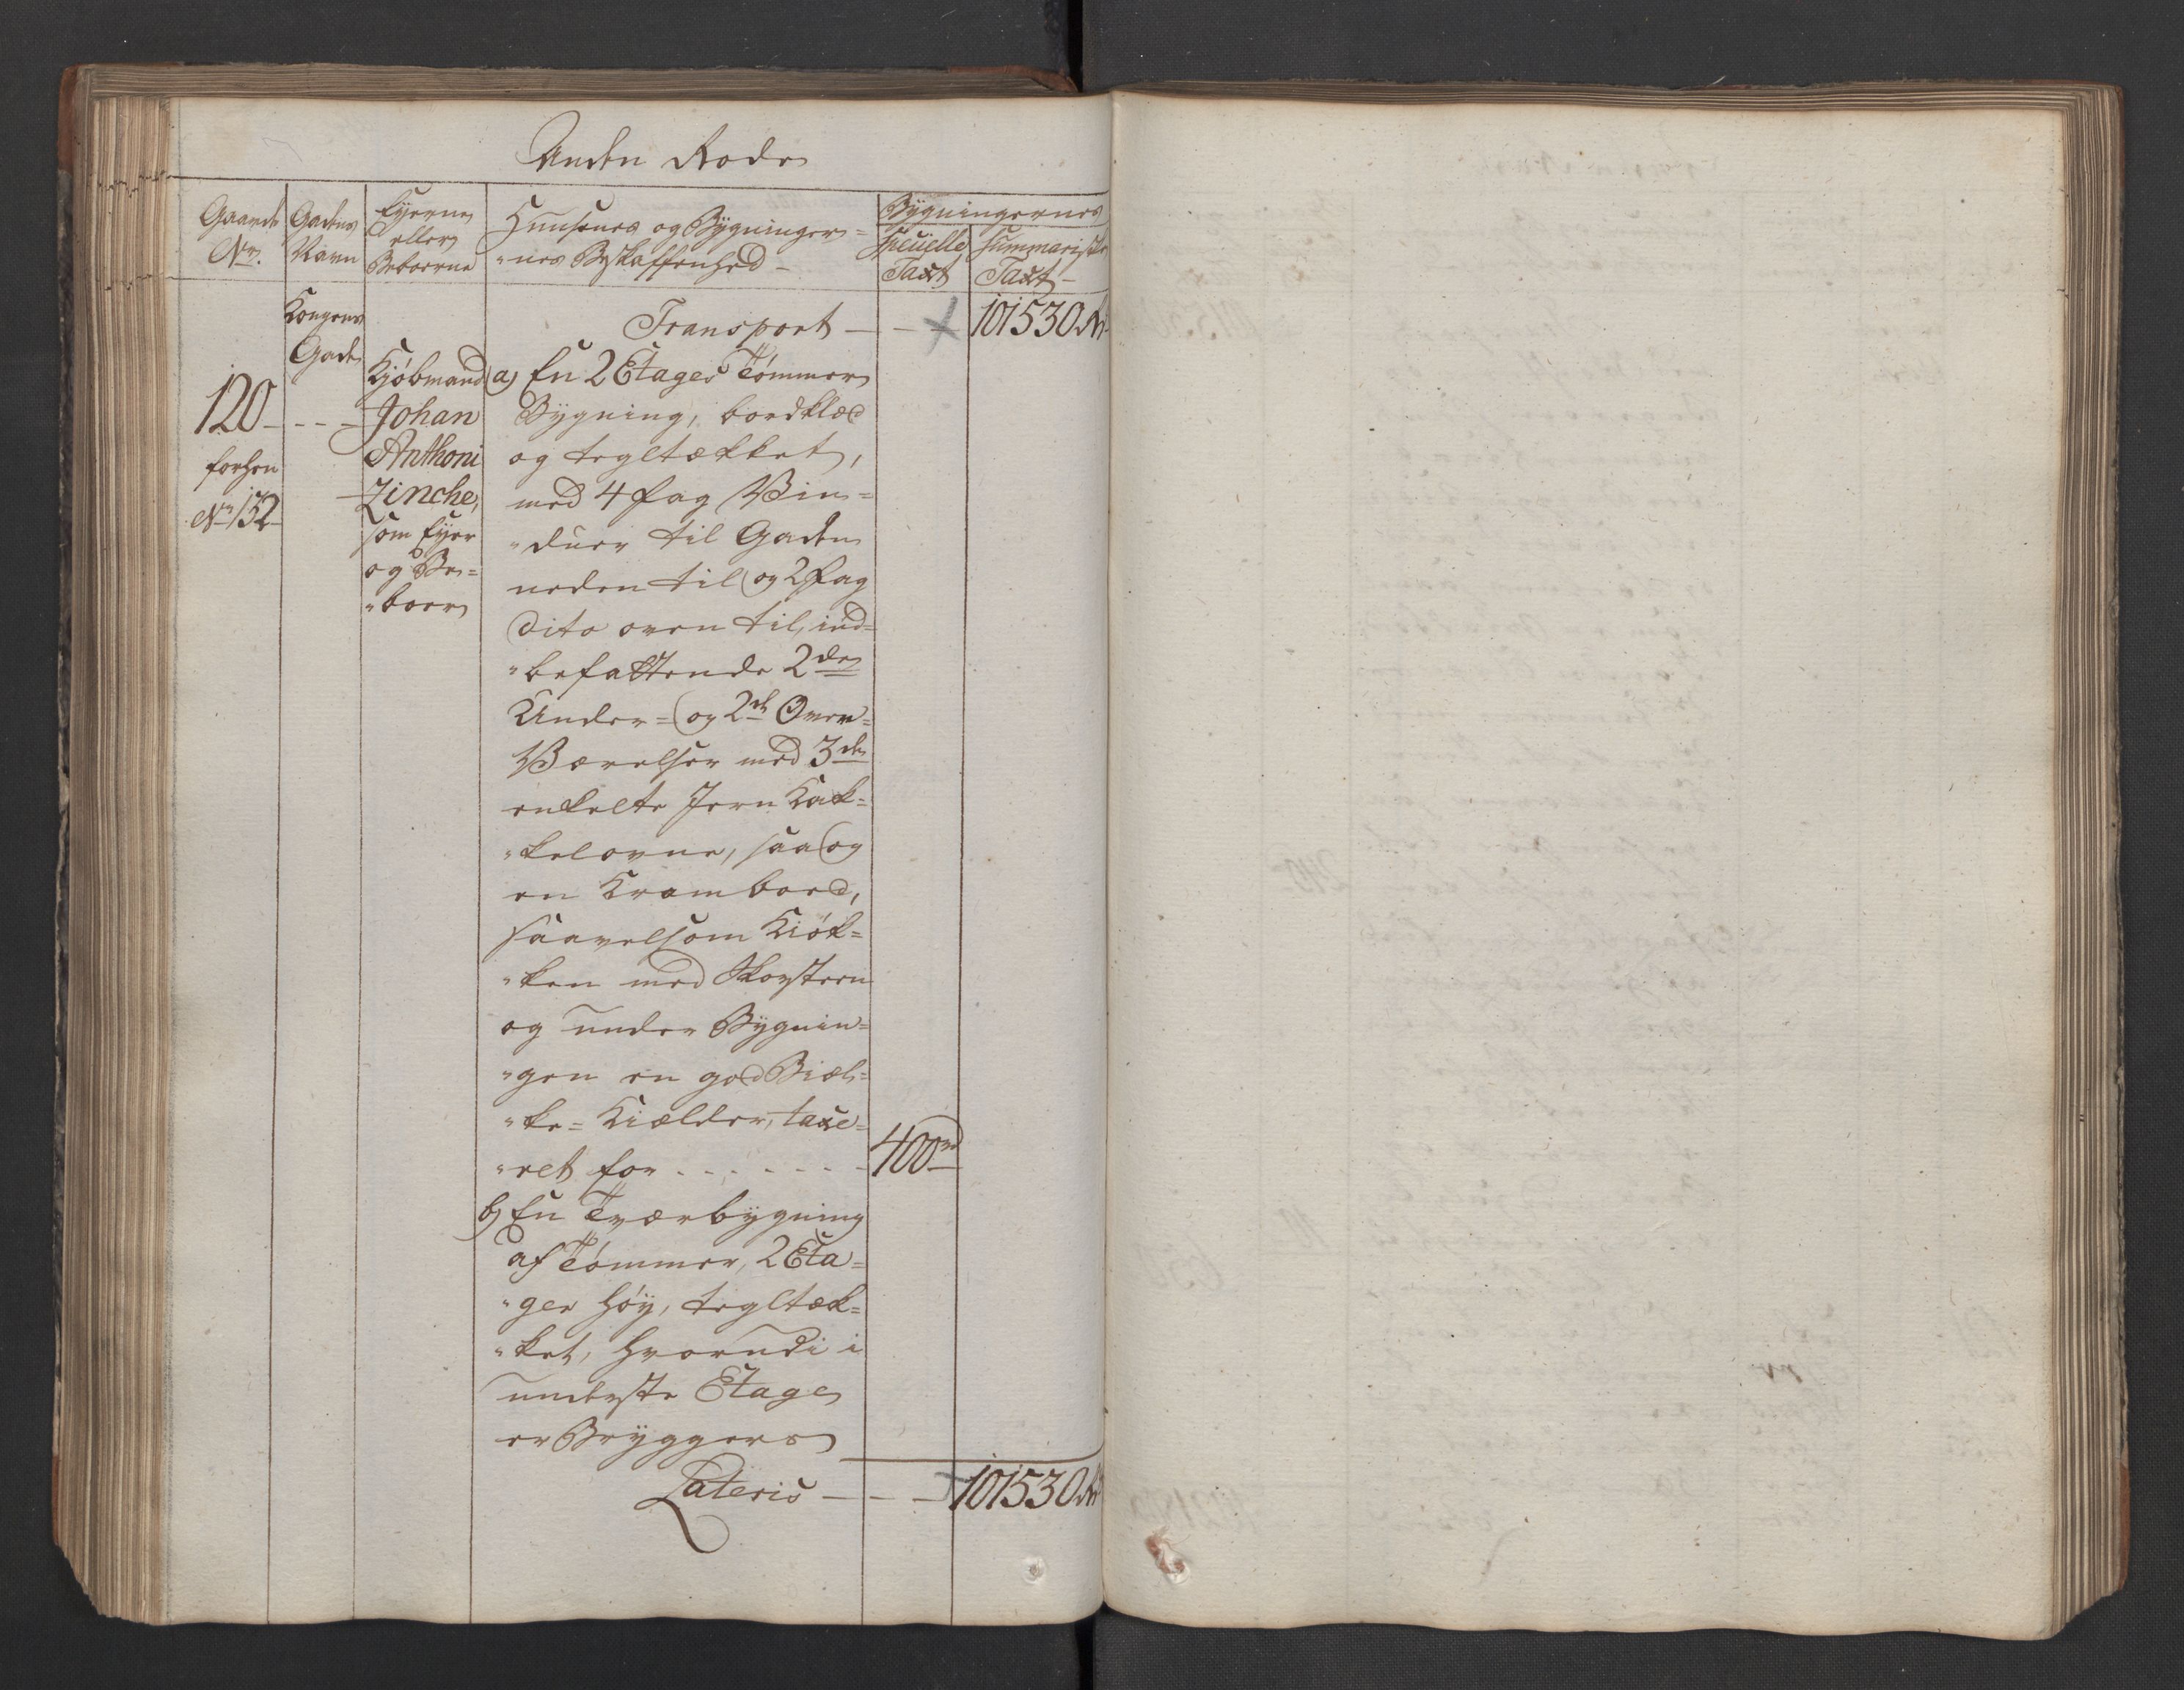 Anden Rode
Gaarde No.
Gadens Navn
Eyerne eller Beboerne
Huusenes og Bygninger=
"nes Beskaffenhed -
Bygningernes
specielle Taxt
summariske Taxt -
Kongens
Gade
Transport - - 101530 Rd
120 - - - -
forhen
No 152
Kjøbmand
Johan
Anthoni
Zinche,
som Eyer
og Be=
"boer
a) En 2 Etages Tømmer
Bygning, bordklæd
og tegltækket,
med 4 Fag Vin=
"duer til Gaden
neden til og 2 Fag
dito oven til, ind=
"befattende 2de
Under= og 2de Over=
Værelser med 3de
enkelte Jern Kak=
"kelovne, saa og
en Kramboed,
saavelsom Kiøk=
"ken med Skorsteen
og under Bygnin=
"gen en god Biæl=
"ke= Kielder, taxe=
"ret for - - - - - - 400 rd
b) En Tværbygning
af Tømmer, 2 Eta=
"ger høy, tegltæk=
"ket, hvorudi i
underste Etage
er Bryggers
Lateris - - - 101530 Rd